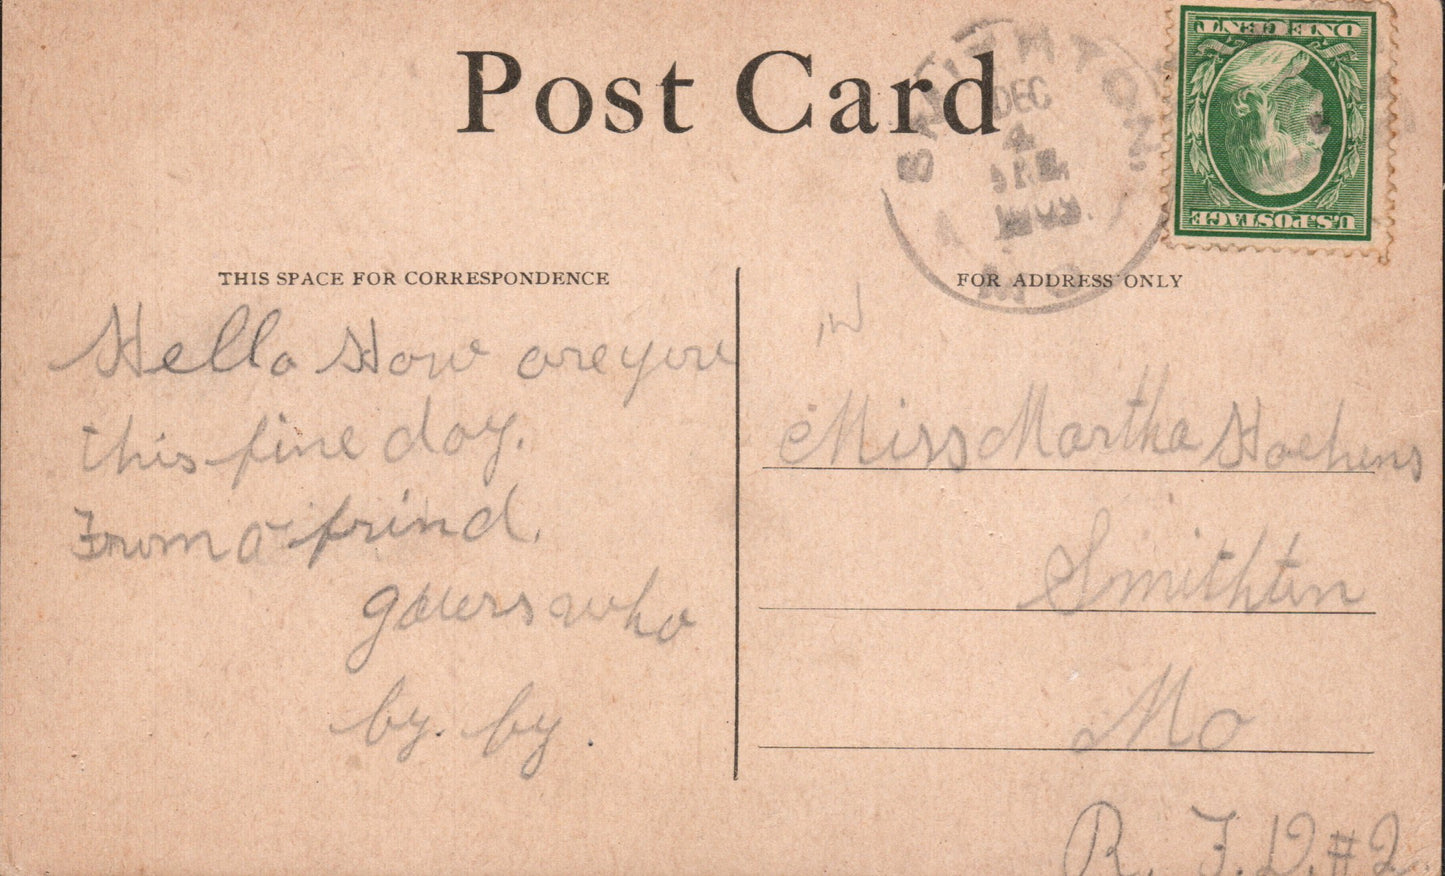 Post Card
SMITHTON,
DEC
4
1909
MO
ONE CENT
U.S. POSTAGE
THIS SPACE FOR CORRESPONDENCE
Hello How are you
this fine day.
From a frind.
who
by. by.
FOR ADDRESS ONLY
Miss Martha
Smithton
Mo
R. F. D. #2